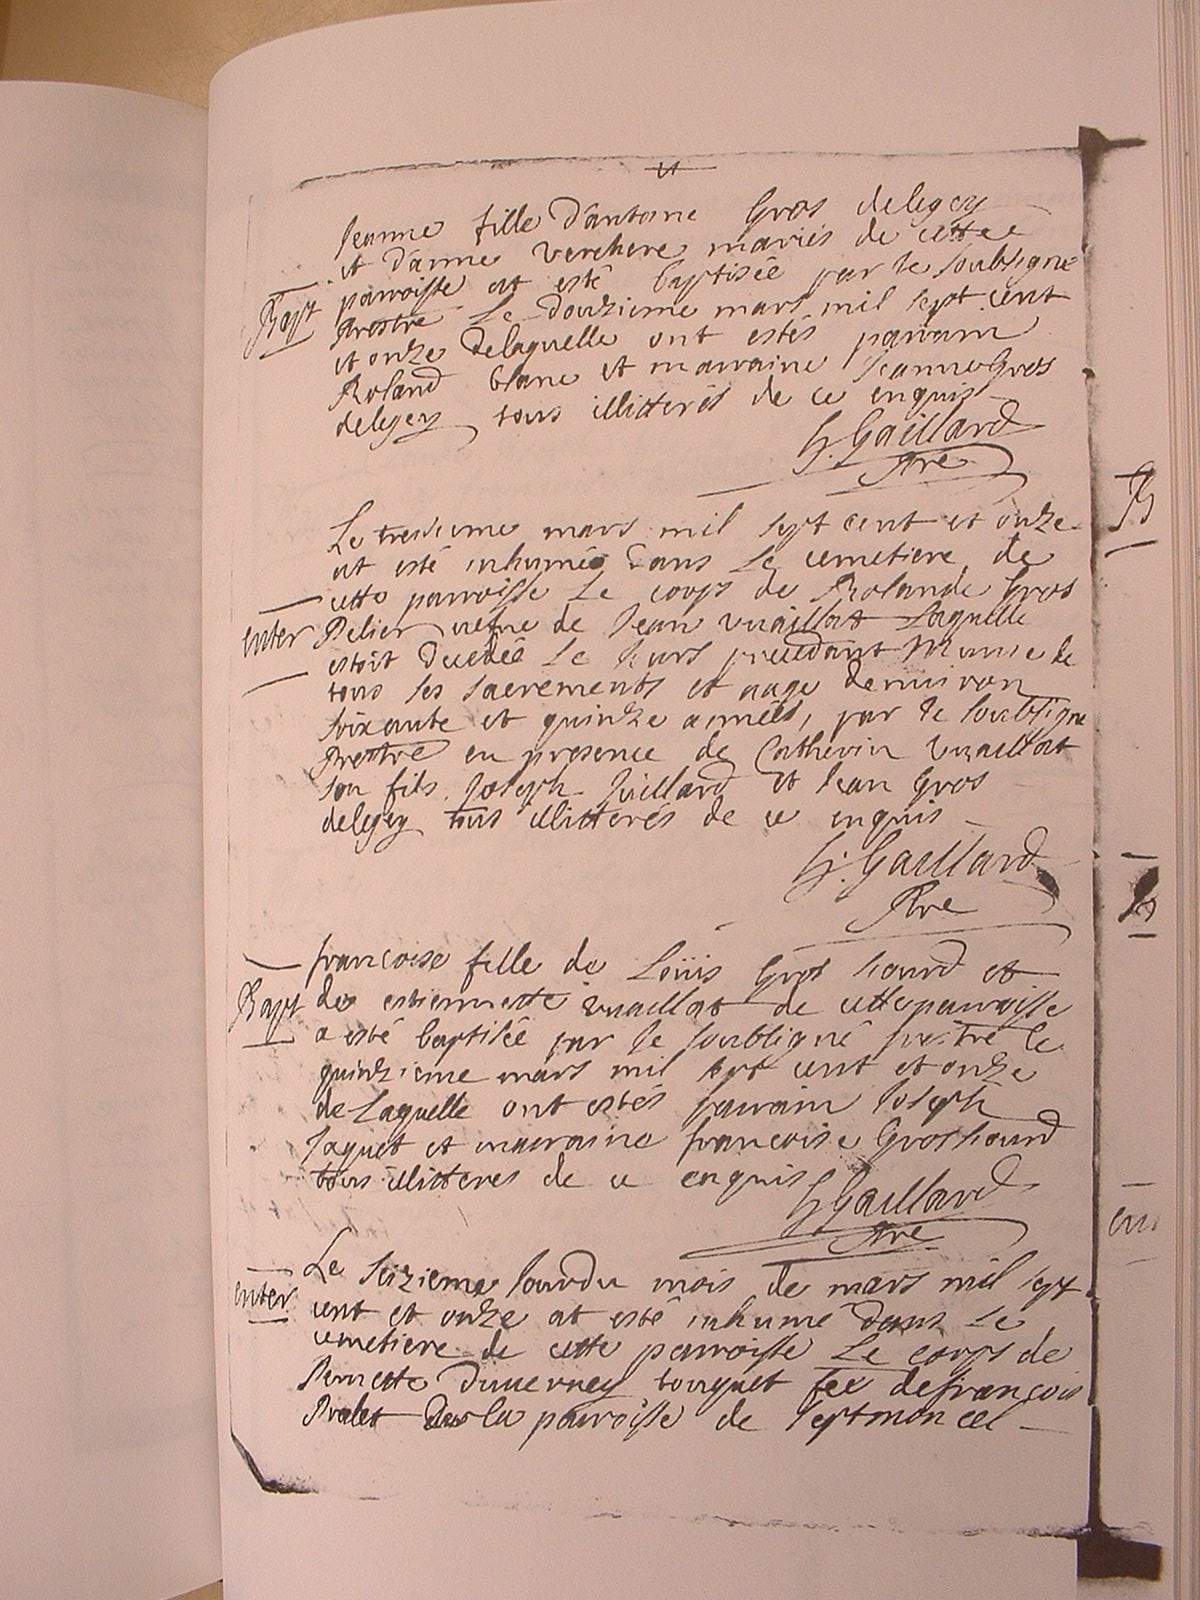 Jeanne fille d'antoine Gros delegey
et d'anne verchere mariés de cette
Bapt
parroisse at esté baptisée par le soubsigné
prestre le douzieme mars mil sept cent
et onze de laquelle ont estés parrain
Roland blanc et marraine Jeanne Gros
delegey tous illitterés de ce enquis
G. Gaillard
Pre
Le tresieme mars mil sept cent et onze
at esté inhumée dans le cemetiere de
cette parroisse le corps de Rolande Gros
enter
Pelier vefve de Jean vuaillat laquelle
estoit decedée le jours precedant Munie de
tous les sacrements et aage denviron
soixante et quinze années, par le soubsigne
Prestre en presence de Catherin vuaillat
son fils Joseph Juillard et Jean Gros
delegey tous illitterés de ce enquis
G. Gaillard
Pre
francoise fille de Loüis Gros hourd et
Bapt
de estiennette vuaillat de cette parroisse
a esté baptisée par le soubsigné prestre le
quinzieme mars mil sept cent et onze
de Laquelle ont estés parrain Joseph
Jaquet et marraine francoise Groshourd
tous illitteres de ce enquis
G Gaillard
Pre
Le seizieme jour du mois de mars mil sept
enter
cent et onze at esté inhumé dans le
cemetiere de cette parroisse Le corps de
Pernette Duverney de francois
la parroisse de septmoncel